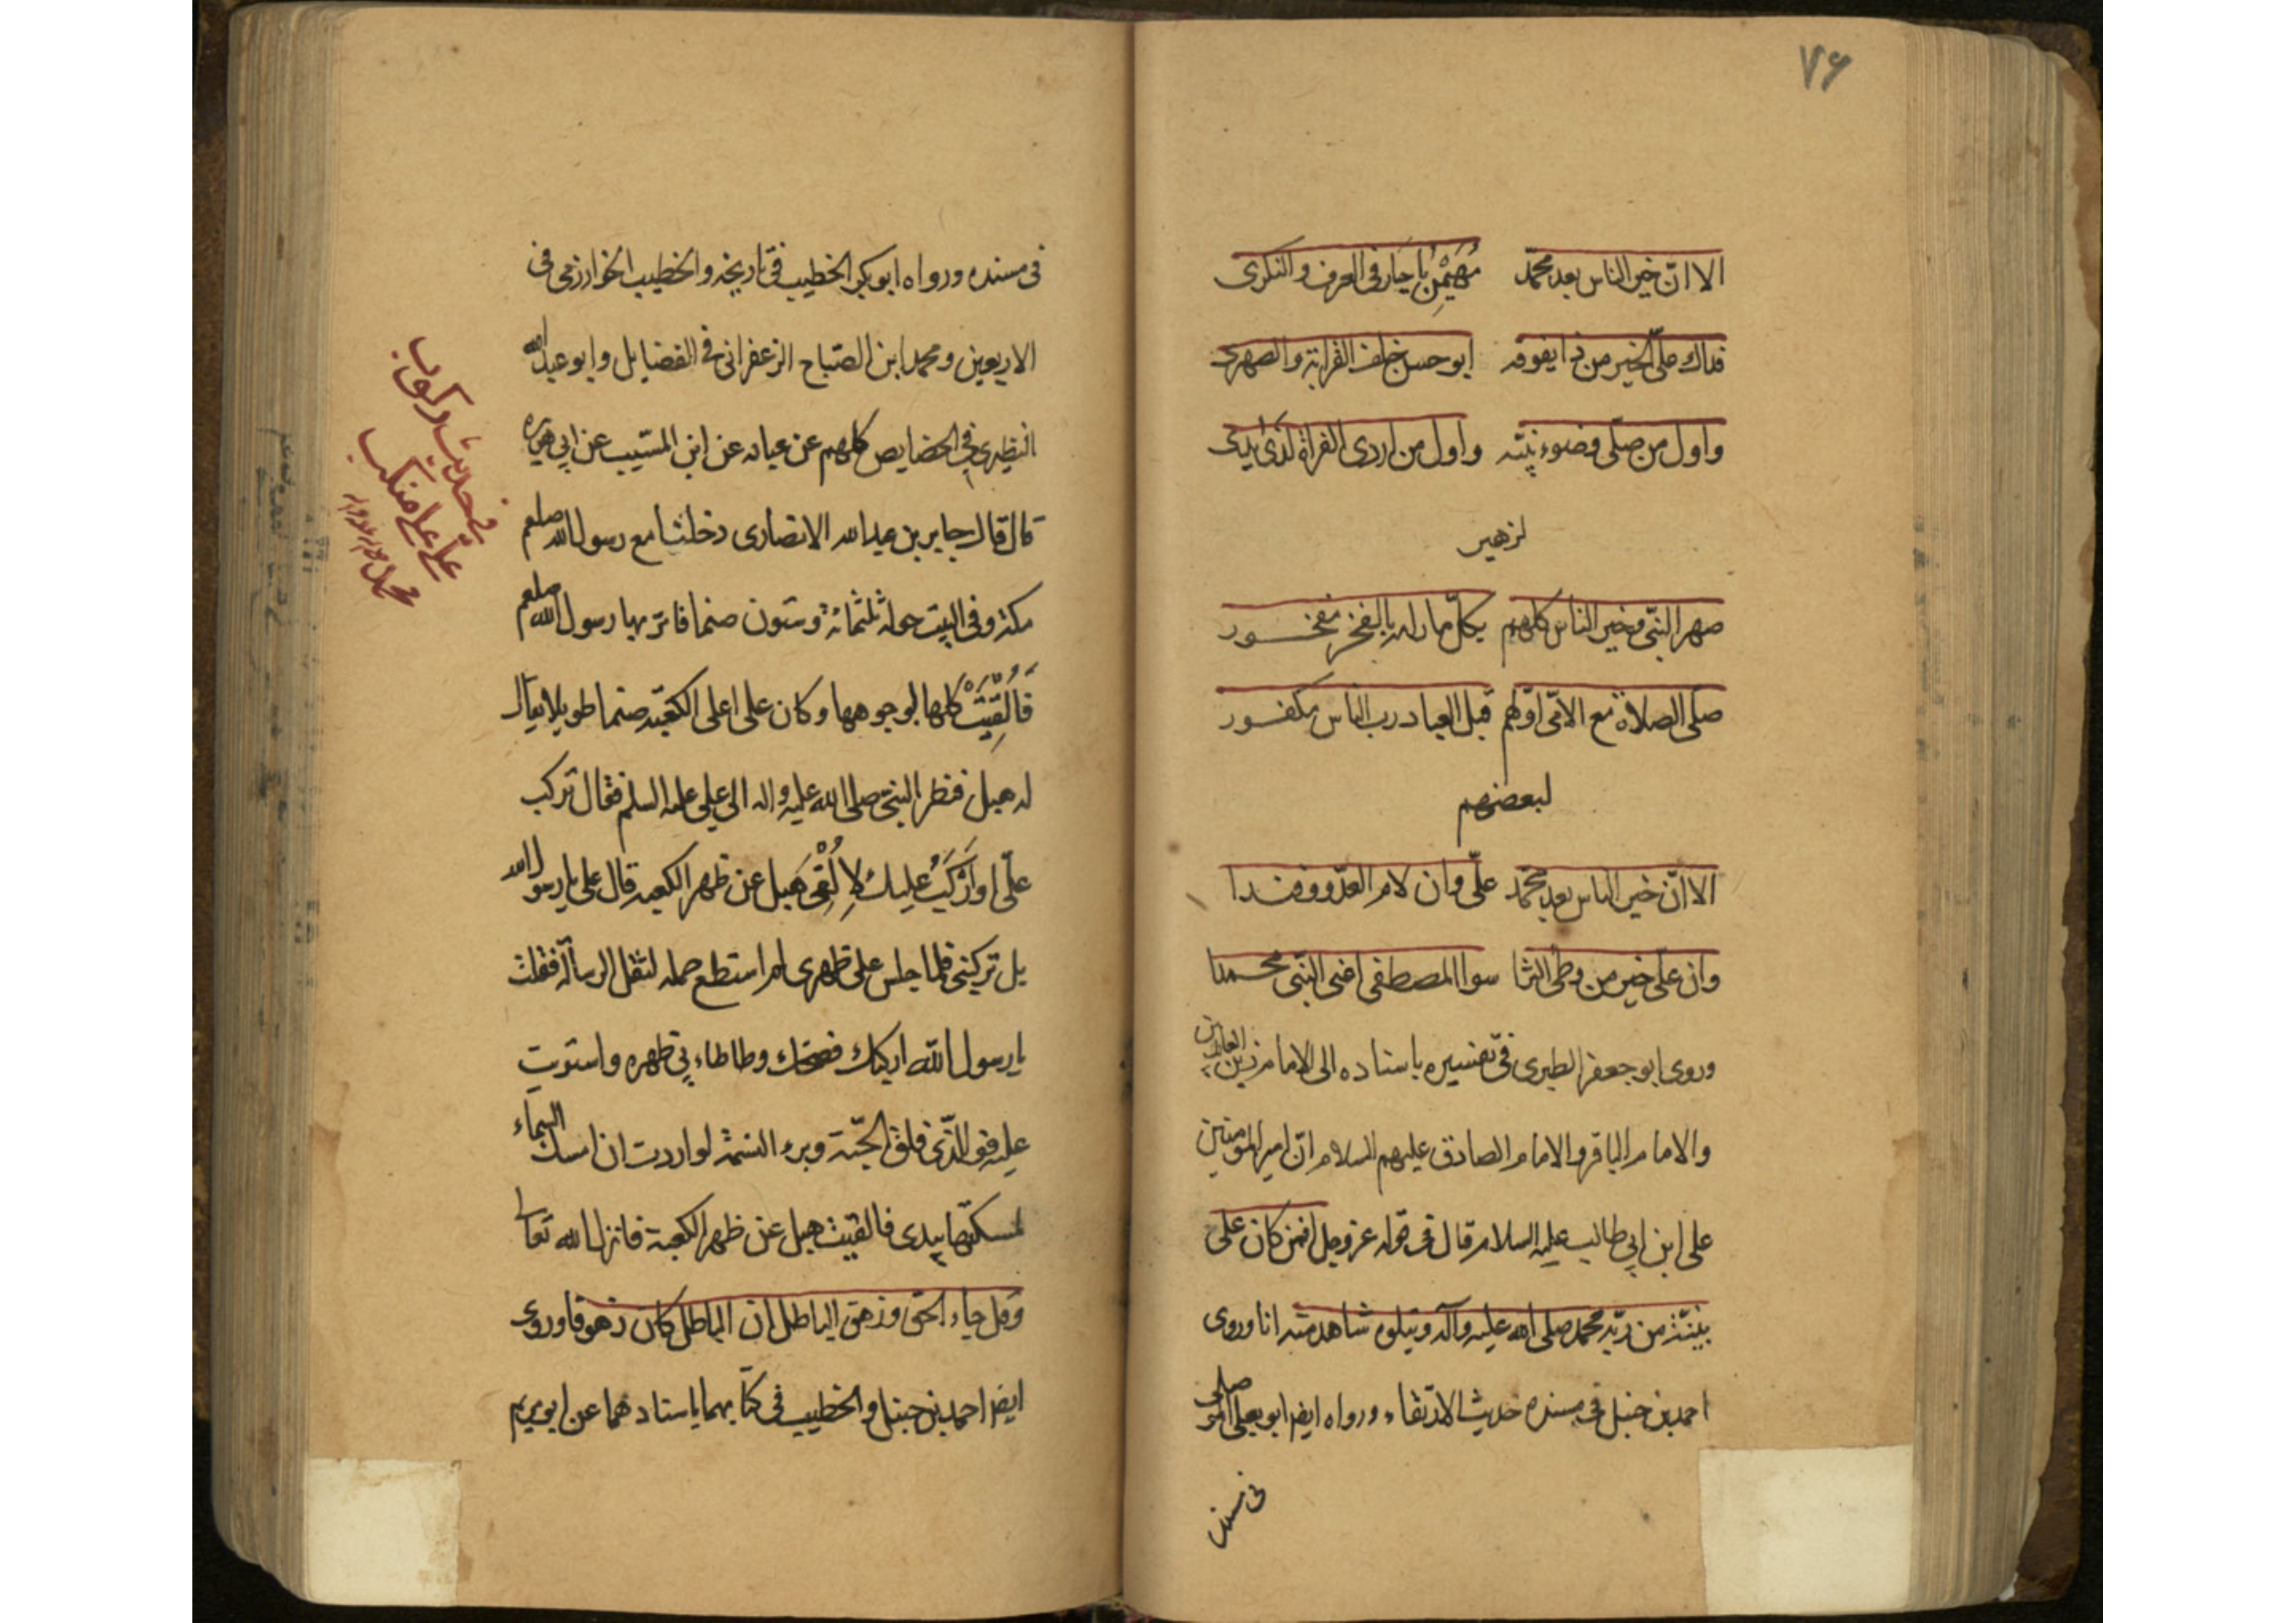 ۷۶
الا انّ خير الناس بعد محمّد مُهَيْمِنُ يا جبار فى العرف والنكرى
فداك علىّ الخير من ذا يفوقه ابو حسن خلف القرابة والصهرى
واول من صلّى وضوء نبيّه واول من اردى الغراة لدى بدرى
لزهير
صهر النبىّ وخير الناس كلهم بكلّ ما رامه بالفخر مفخــور
صلّى الصلاة مع الامّى اوّلهم قبل العباد ربّ الناس مكفــور
لبعضهم
الا انّ خير الناس بعد محمّد علىّ وان لام العدّو وفندا
وان علىّ خير من وطى الثرا سوا المصطفى اعنى النبّى محــمدا
وروى ابو جعفر الطبرى فى تفسيره باسناده الى الامام زين العابدين
والامام الباقر والامام الصادق عليهم السلام انّ امير المومنين
على ابن ابى طالب عليه السلام قال فى قوله عز وجل افمن كان على
بيّنة من ربّه محمد صلى الله عليه وآله ويتلوه شاهد منه انا وروى
احمد بن حنبل فى مسنده حديث الارتقاء ورواه ايضر ابو يعلى الموصلى
فى مسنده
فى مسنده ورواه ابو بكر الخطيب فى تاريخه والخطيب الخوارزمى فى
الاربعين ومحمد ابن الصّباح الزعفرانى فى الفضايل وابو عبد الله
النطيرى فى الخصايص كلهم عن عن ابن المسّيب عن ابى هريره
قال قال جابر بن عبد الله الانصارى دخلنا مع رسول الله صلعم
مكة وفى البيت حوله ثلثمائة وستون صنما فامر بها رسول الله صلعم
فَاُلْقِيَتْ كلها لوجوهها وكان على اعلى الكعبه صنما طويلا يقال
له هبل فنظر النبىّ صلى الله عليه واله الى على عليه السلم فقال تركب
علىّ او اَرْكَبُ عليك لِاُلْقِىَ هَبل عن ظهر الكعبه قال على يا رسول الله
بل تركبنى فلما جلس على ظهرى لم استطع حمله لثقل الرسالة فقلت
يا رسول الله اركبك فضحك وطاطاء بى ظهره واستويت
عليه فو الذّى فلق الحّبة وبرء النسمة لو اردت ان امسك السماء
لمسكتها بيدى فالقيت هبل عن ظهر الكعبة فانزل الله تعالى
وقل جاء الحق وزهق الباطل ان الباطل كان زهوقا وروى
ايضر احمد بن حنبل والخطيب فى كتابهما باسنادهما عن ابو مريم
فى حديث ركوب
علىّ على منكب
محمد